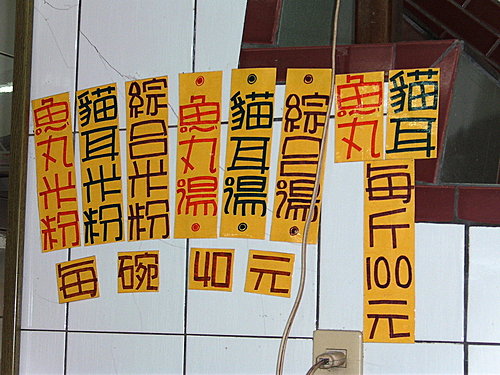 魚丸米粉
貓耳米粉
綜合米粉
魚丸湯
貓耳湯
綜合湯
魚丸
貓耳
每斤100元
每碗40元